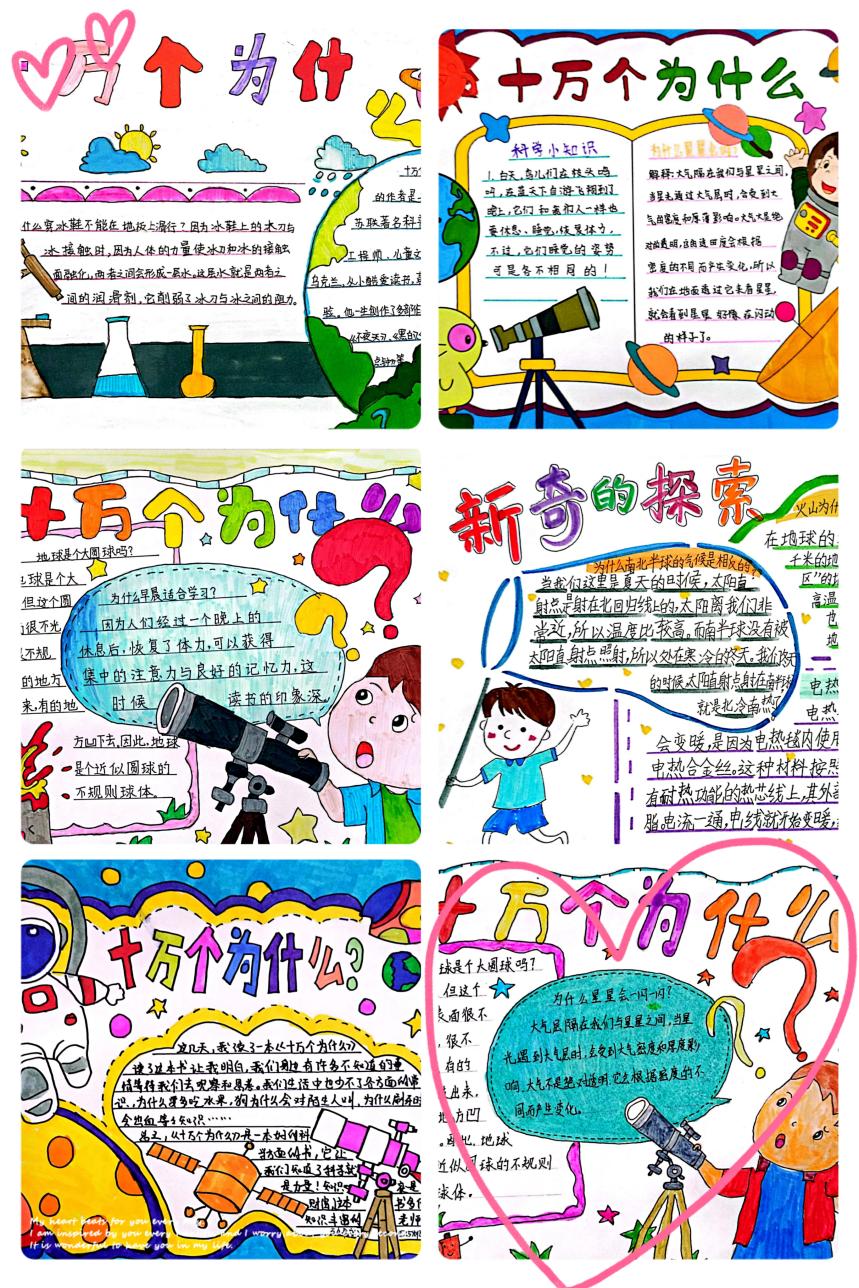 万个为什
什么穿冰鞋不能在地板上滑行?因为冰鞋上的冰刀与
冰接触时,因为人体的力量使冰刀和冰的接触
面融化,两者之间会形成一层水。这层水就是两者之
间的润滑剂,它削弱了冰刀与冰之间的阻力。
的作者是
苏联著名科
工程师、儿童文
马克兰,从小酷爱读书,
他一生创作了多部作
十万个为什么
科学小知识
1.白天,鸟儿们在枝头鸣
叫,在蓝天下自游飞翔到了
晚上,它们和我们人一样也
要休息、睡觉,恢复体力,
不过,它们睡觉的姿势
可是各不相同的!
解释:大气隔在我们与星星之间,
当星光通过大气层时,会受到大
气的密度和厚薄影响。大气不是绝
对的透明,它的透明度会根据
密度的不同而产生变化,所以
我们在地面透过它来看星星,
就会看到星星好像在闪动
的样子了。
十万个为什么
地球是个大圆球吗?
地球是个大
但这个圆
很不光
不规
的地方
来,有的地
方凹下去,因此,地球
是个近似圆球的
不规则球体。
为什么早晨适合学习?
因为人们经过一个晚上的
休息后,恢复了体力,可以获得
集中的注意力与良好的记忆力,这
时候 读书的印象深
新奇的探索
为什么南北半球的气候是相反的
当我们这里是夏天的时候,太阳直
射点是射在北回归线上的,太阳离我们非
常近,所以温度比较高。而南半球没有被
太阳直射点照射,所以处在寒冷的冬天。我们冬天
的时候,太阳直射点射在南半球
就是北冷南热了
火山为什
在地球的
千米的地
区”的
高温
也
地
电热
电热
会变暖,是因为电热毯内使用
电热合金丝。这种材料按照
有耐热功能的热芯线上,其外
脂。电流一通,电线就开始变暖,
十万个为什么?
这几天,我读了一本《十万个为什么》
读了这本书让我明白,我们身边有许多不知道的事
情等待我们去观察和思考。我们生活中也少不了各方面的常
识,为什么要多吃水果,狗为什么会对陌生人叫,为什么刷牙时
会出血等等知识……
总之,《十万个为什么》是一本好的科
学方面的书,它让
我们知道了科学就
是力量!知识
财富,这本
知识丰富的
My heart beats for you ever
I am inspired by you every and I worry about
It is wonderful to have you in my life.
十万个为什么
球是个大圆球吗?
但这个
表面很不
很不
有的
出来,
地方凹
因此,地球
近似圆球的不规则
球体。
为什么星星会一闪一闪?
大气层隔在我们与星星之间,当星
光遇到大气层时,会受到大气密度和厚度影
响,大气不是绝对透明,它会根据密度的不
同而产生变化。